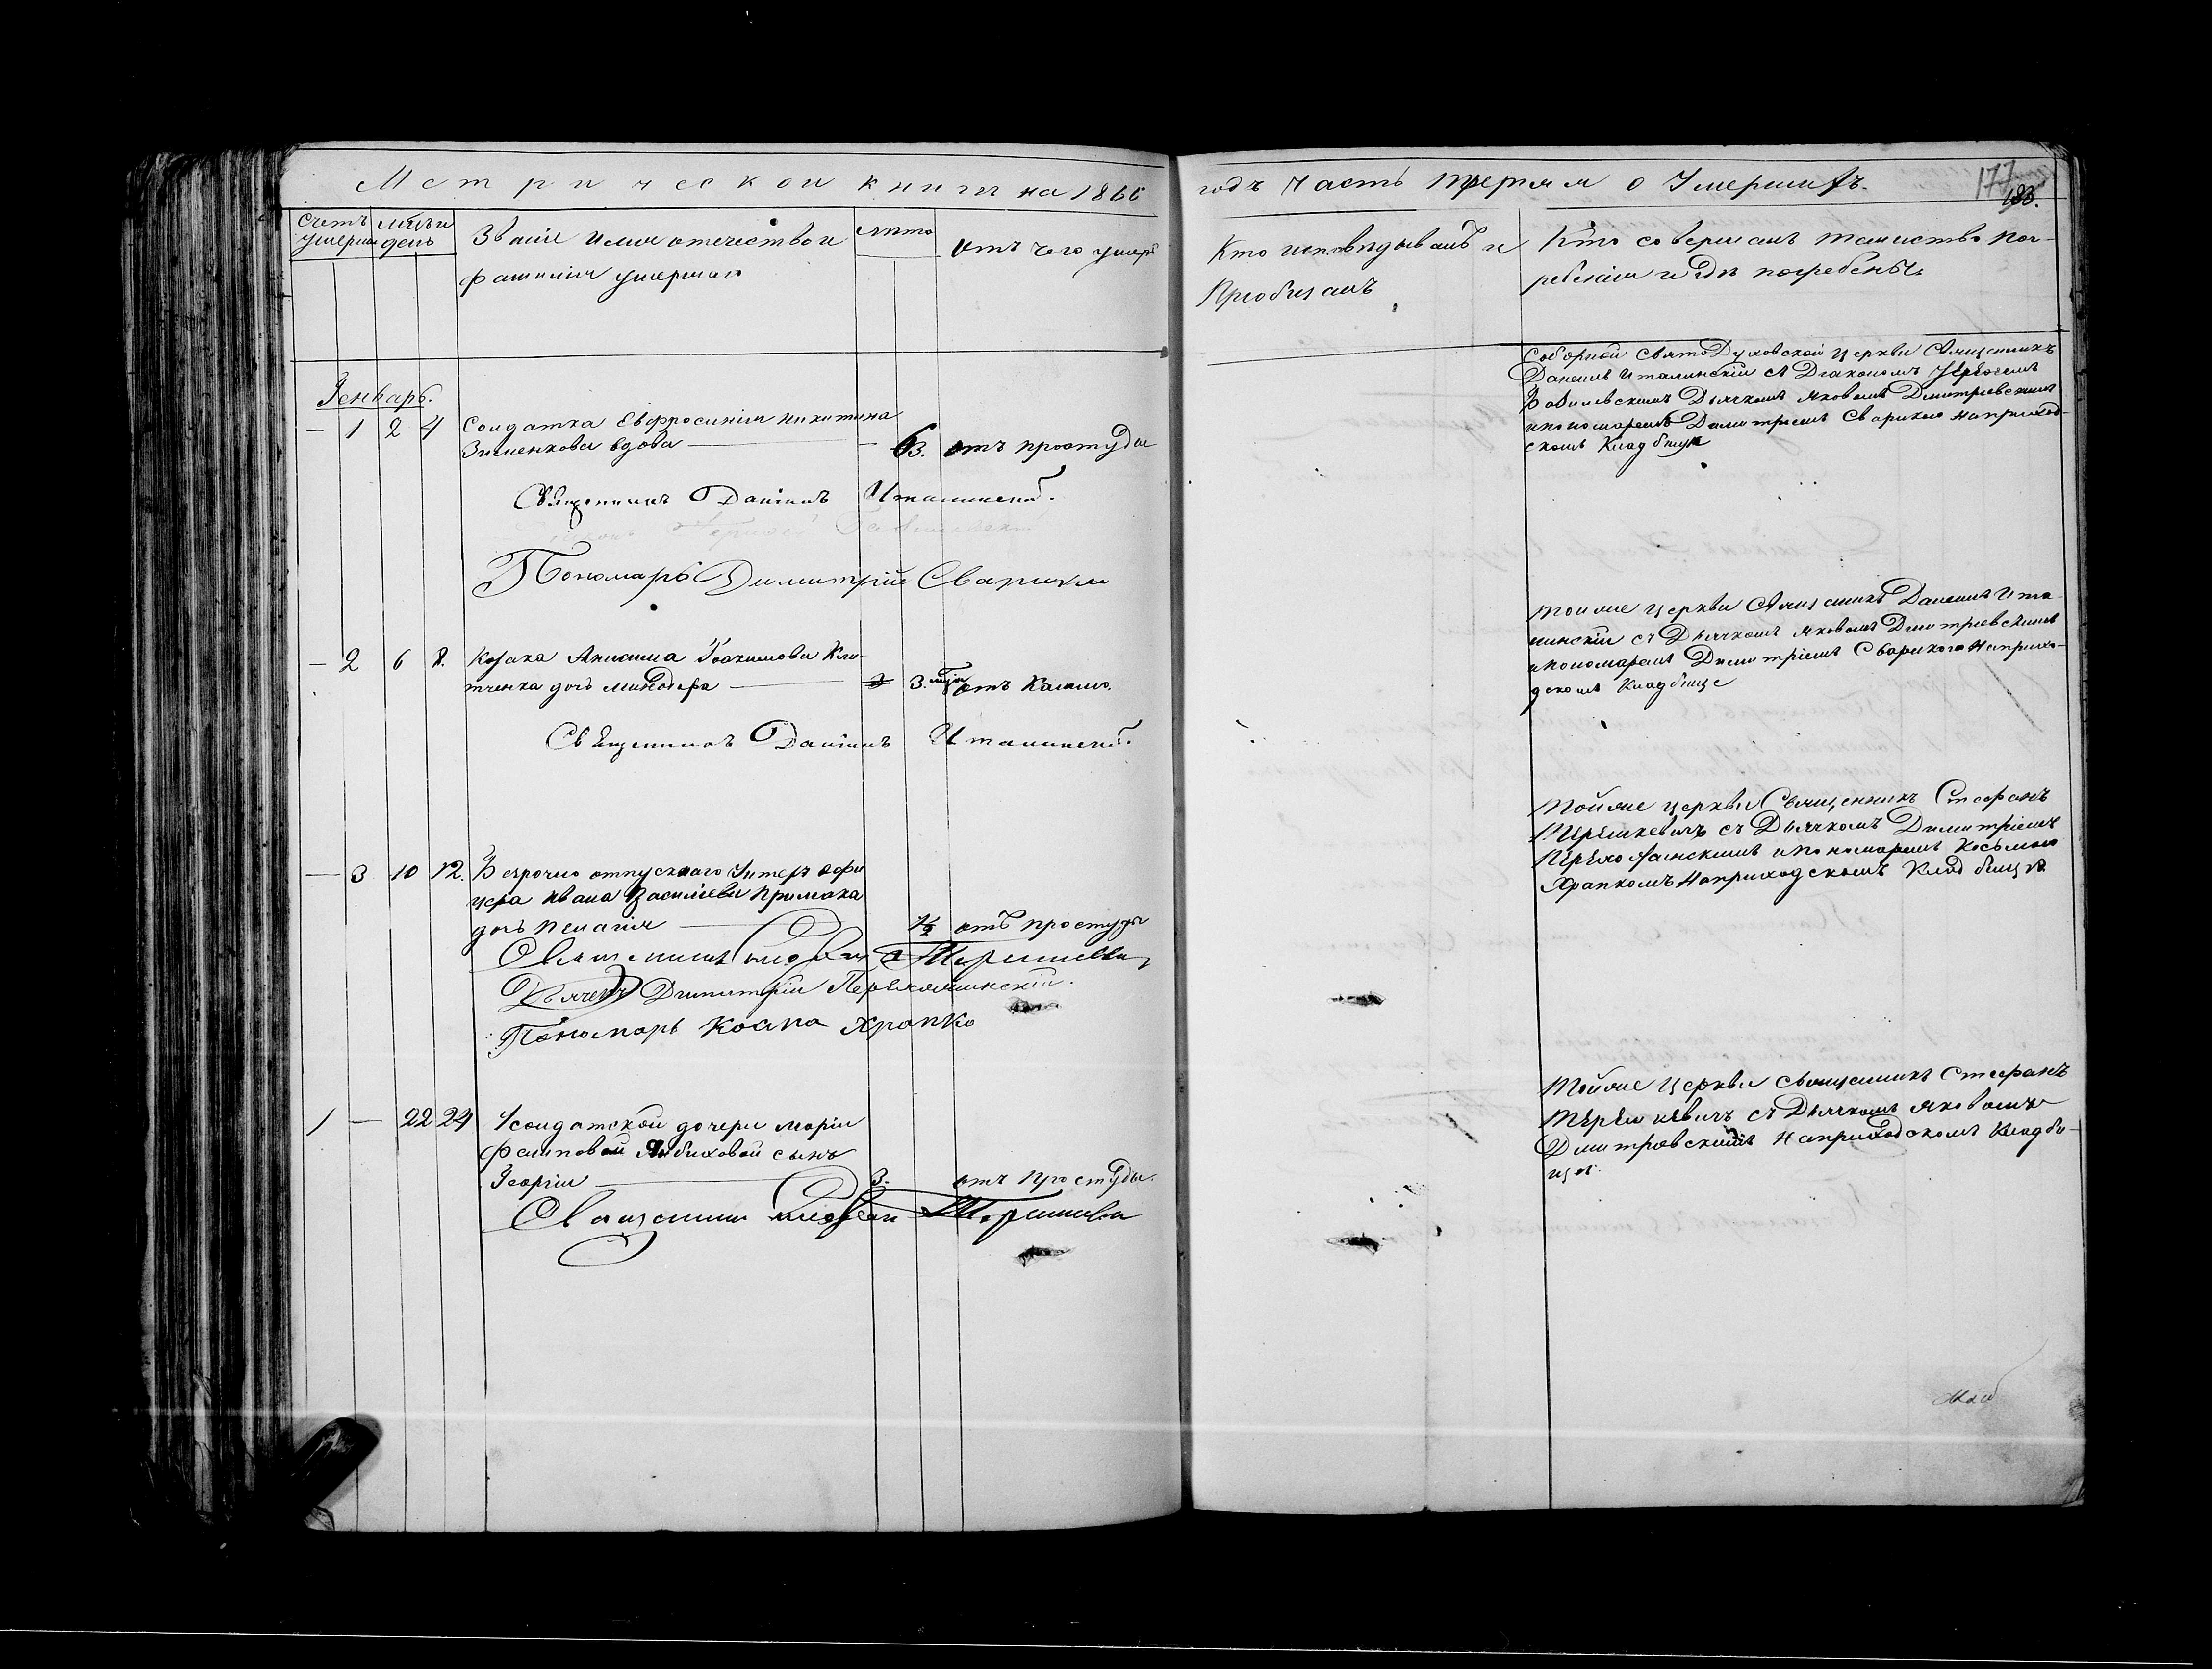 Метрической книги на 1866
годъ Часть третяя о Умершихъ.
177
183.
Счетъ умерши
мѣсъ и день
Званіе имя отечество и
фамилія умершаго
лѣто
Отъ чего умеръ
Кто исповѣдывалъ и
Пріобщалъ
Кто совершалъ таинство пог-
ребенія и гдѣ погребены
Генварь.
— 1 2 4 Солдатка Евфросинія Никитина
Зименкова вдова — 63. отъ простуды
Соборной СвятоДуховской церкви Священникъ
Даніилъ Италинскій съ Діакономъ
Дьячкомъ Яковомъ Дмитріевскимъ
и пономаремъ Димитріемъ Сварикою на приход-
скомъ Кладбищѣ
Священникъ Даніилъ Италинскій.
Пономарь Димитрій Сварика
— 2 6 8. Козака Акима
тченка дочь Минодора — 3. мца отъ Кашлю.
Тойже церкви Священникъ Даніилъ Ита-
линскій съ Дьячкомъ Яковомъ Дмитріевскимъ
и пономаремъ Димитріемъ Сварикою на прихо-
дскомъ Кладбище
Священникъ Даніилъ Италинскій.
— 3 10 12. Безсрочно отпускнаго Унтеръ офи
цера Ивана Василіева Примака
дочь Пелагія — 1/2 отъ простуды
Тойже церкви Священникъ Стефанъ
Терешкевичъ съ Дьячкомъ Димитріемъ
и пономаремъ Косьмою
Храпкомъ на приходскомъ Кладбищѣ
Священникъ
Дьячекъ Димитрій
Пономарь Косма Храпко
1 — 22 24 Солдатской дочери Маріи
сынъ
Георгій — 3. отъ простуды.
Тойже церкви священникъ Стефанъ
Терешкевичъ съ Дьячкомъ Яковомъ
Дмитровскимъ на приходскомъ Кладби-
щѣ
Священникъ